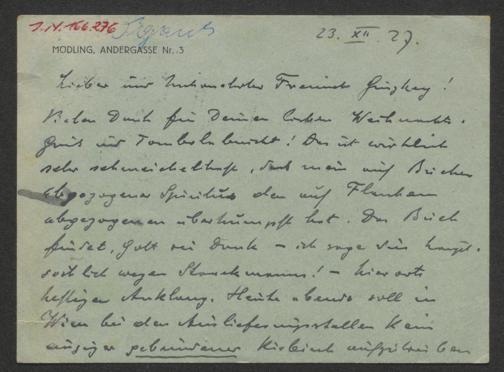 I.N. 166.276
23. XII. 27.
MÖDLING, ANDERGASSE Nr. 3
Lieber und verehrter Freund Ginzkey!
Vielen Dank für Deinen lieben Weihnachts-
gruß und Tombolabericht! Das ist wirklich
sehr schmeichelhaft, daß mein auf Bücher
abgezogener Spiritus den auf Flaschen
abgezogenen übertrumpft hat. Das Buch
findet, Gott sei Dank – ich sage dies haupt-
sächlich wegen Staackmanns! – hierorts
heftigen Anklang. Heute abends soll in
Wien bei den Auslieferungsstellen kein
einziger gebundener aufzutreiben